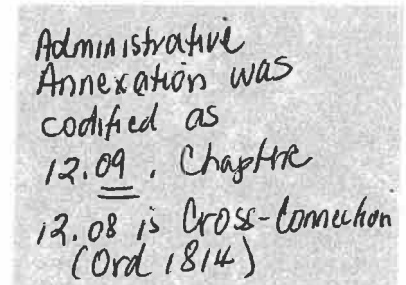 Administrative
Annexation was
codified as
12.09. Chapter
12.08 is Cross-Connection
(Ord 1814)